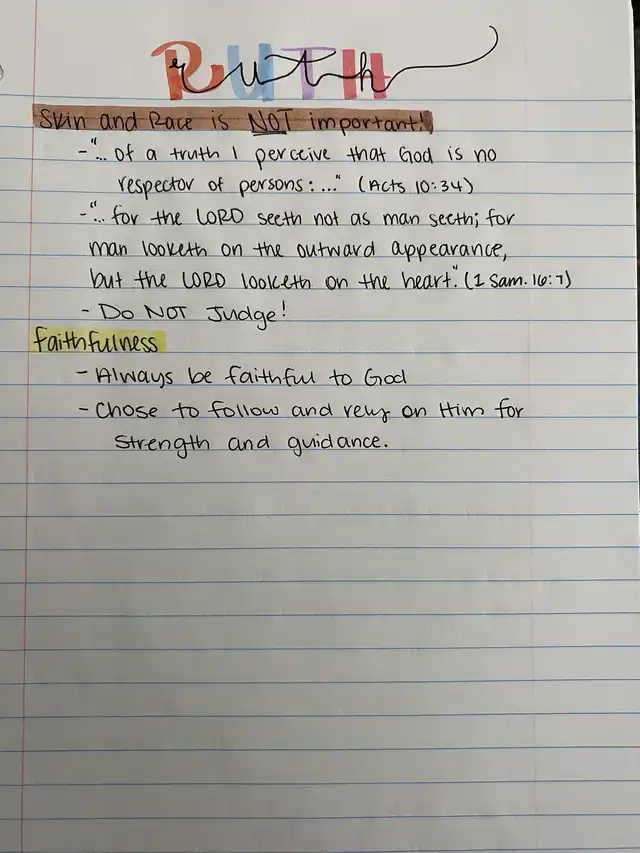 RUTH
ruth
Skin and Race is NOT important!
- "... of a truth I perceive that God is no
respector of persons: ..." (Acts 10:34)
- "... for the LORD seeth not as man seeth; for
man looketh on the outward appearance,
but the LORD looketh on the heart." (1 Sam. 16:7)
- Do NOT Judge!
faithfulness
- Always be faithful to God
- Chose to follow and rely on Him for
Strength and guidance.